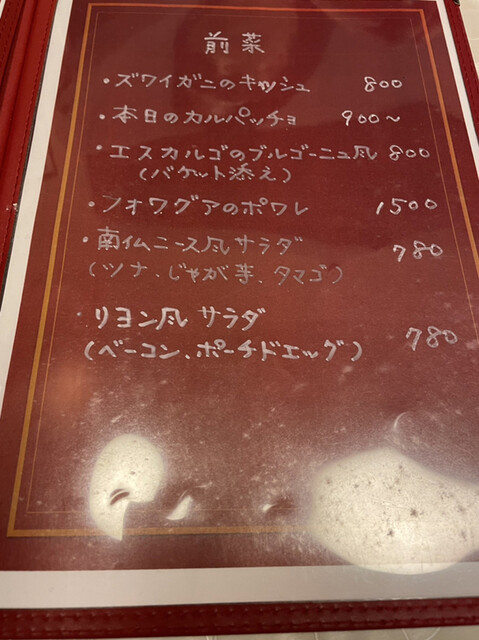 前菜
・ズワイガニのキッシュ 800
・本日のカルパッチョ 900〜
・エスカルゴのブルゴーニュ風 800
(バケット添え)
・フォワグアのポワレ 1500
・南仏ニース風サラダ 780
(ツナ、じゃが芋、タマゴ)
リヨン風サラダ 780
(ベーコン、ポーチドエッグ)